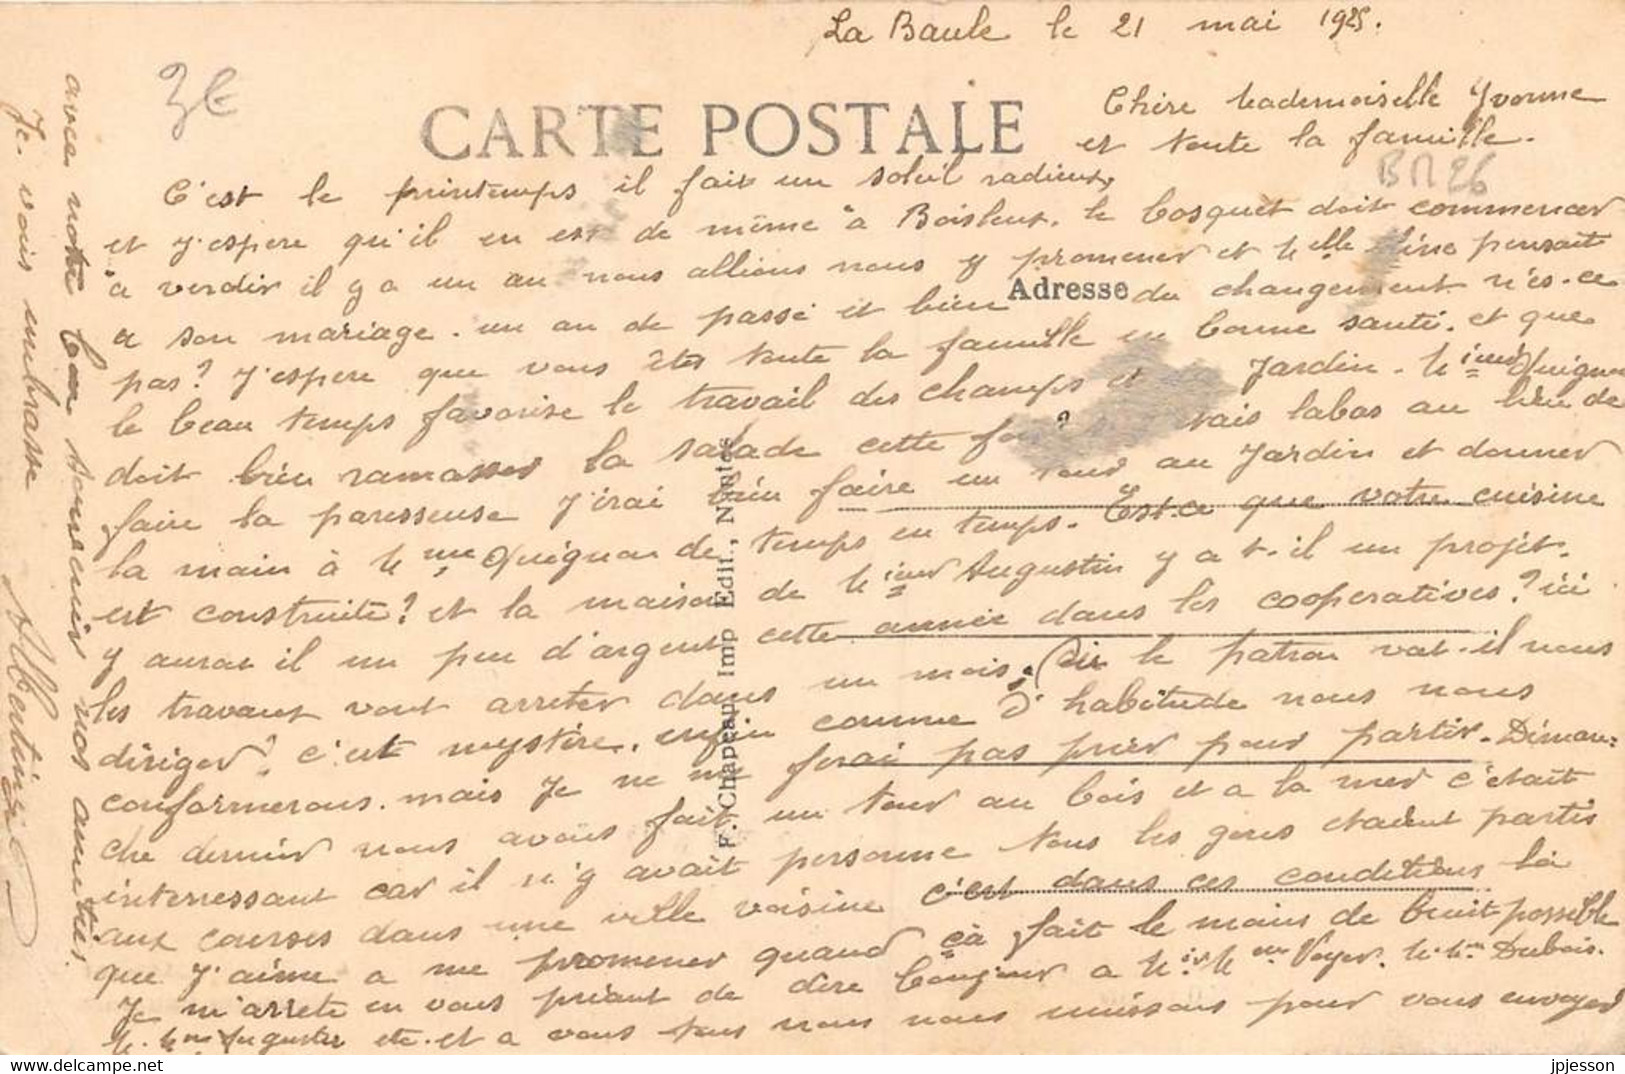 La Baule le 21 mai 1925.
3€
CARTE POSTALE
Chère Mademoiselle Yvonne
et toute la famille.
BM26
C'est le printemps il fait un soleil radieux,
et j'espere qu'il en est de même à Boisleux. le bosquet doit commencer
à verdir il y a un an nous allions nous y promener et Melle Line pensait
a son mariage. un an de passé et bien du changement n'es-ce
Adresse
pas? J'espere que vous êtes toute la famille en bonne santé. et que
le beau temps favorise le travail des champs et jardin. Mieur Guignar
doit bien ramasser la salade cette fois? labas au lieu de
faire la paresseuse j'irai bien faire un tour au jardin et donner
la main à Mme Guignar de temps en temps. Est-ce que votre cuisine
est construite? et la maison de Mieur Augustin y a t-il un projet.
y aurat il un peu d'argent cette année dans les cooperatives? ici
les travaux vont arreter dans un mois, le patron vat-il nous
diriger? c'est mystère. enfin comme d'habitude nous nous
conformerons. mais je ne me ferai pas prier pour partir. Diman=
che dernier nous avons fait un tour au bois et a la mer c'était
interressant car il n'y avait personne tous les gens etaient partis
aux courses dans une ville voisine c'est dans ces conditions là
que j'aime a me promener quand çà fait le moins de bruit possible
Je m'arrete en vous priant de dire bonjour a Mr Mme Voyer. M. Mme Dubois.
M. Mme Auguster etc. et a vous tous nous nous unissons pour vous envoyer
avec notre bon souvenir nos amitiés.
Je vois embrasse
Albertine
F. Chapeau, Imp Edit., Nantes
jpjesson